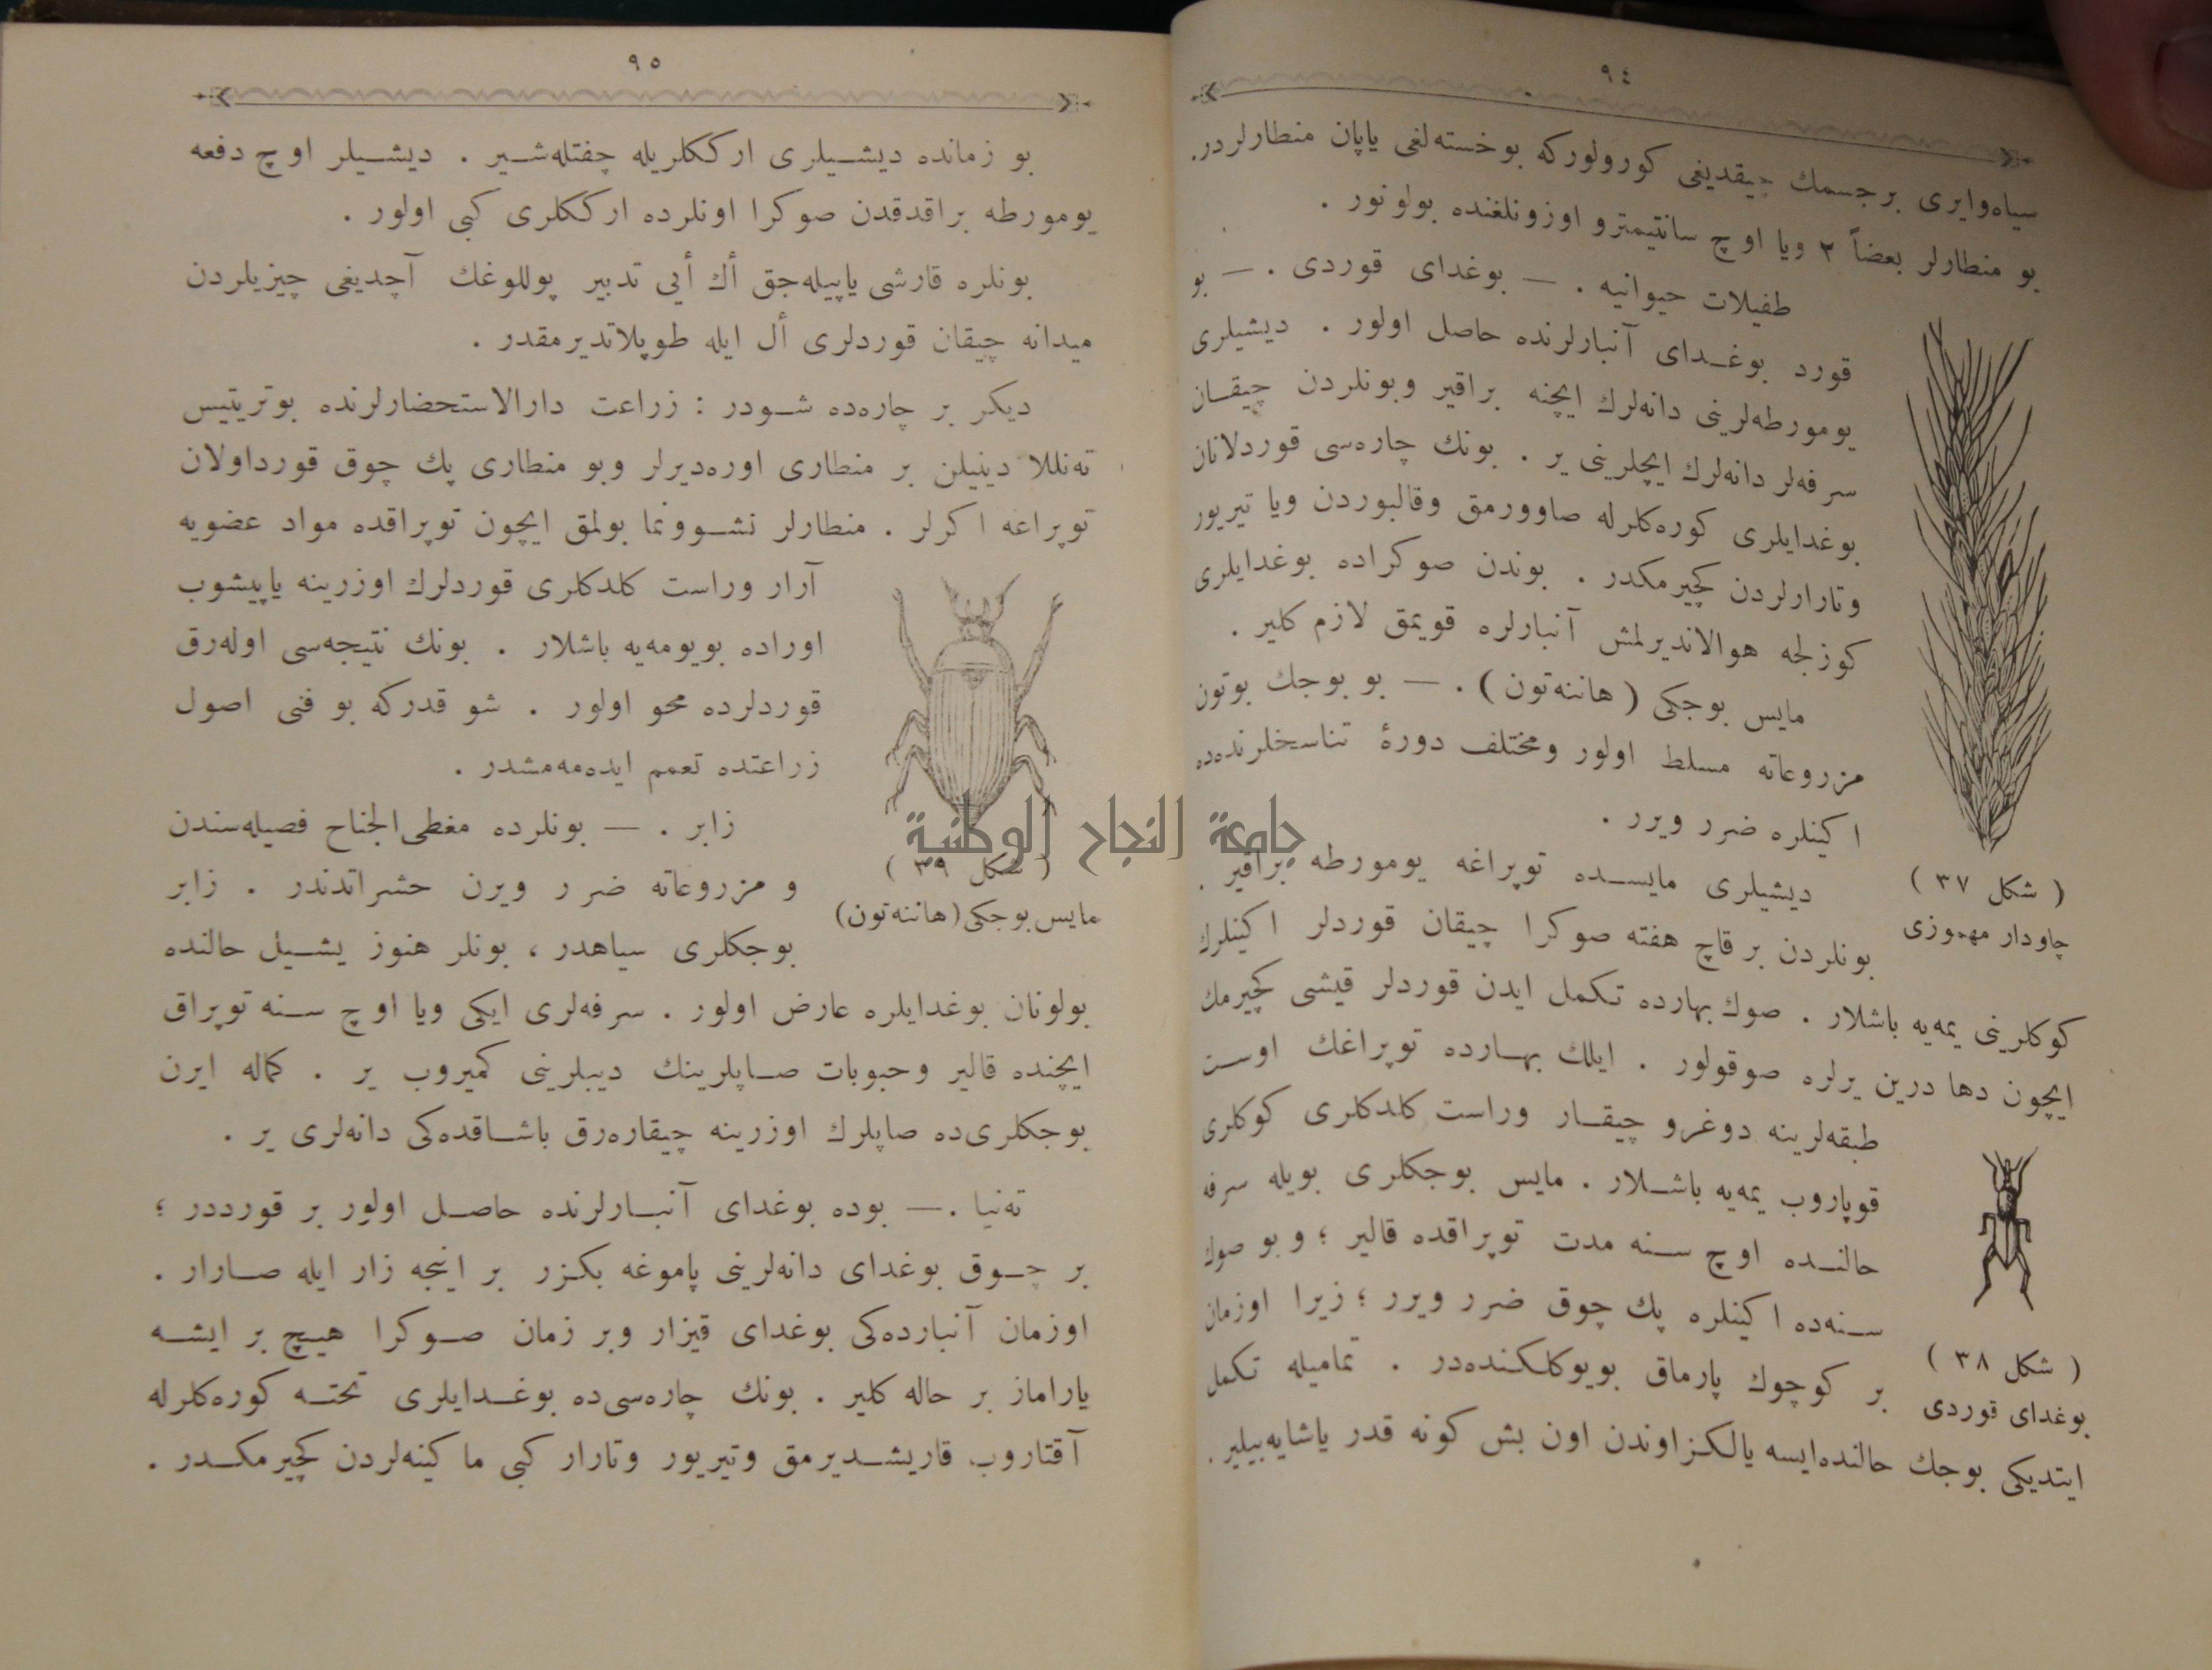 ٩٤
سياه‌وايرى برجسمك چيقديغى كورولوركه بوخسته‌لغى ياپان منطارلردر.
بو منطارلر بعضاً ٢ ويا اوچ سانتيمترو اوزونلغنده بولونور .
طفيلات حيوانيه . — بوغداى قوردى . — بو
قورد بوغداى آنبارلرنده حاصل اولور . ديشيلرى
يومورطه‌لرينى دانه‌لرك ايچنه براقير وبونلردن چيقان
سرفه‌لر دانه‌لرك ايچلرينى ير . بونك چاره‌سى قوردلانان
بوغدايلرى كوره‌كلرله صاوورمق وقالبوردن ويا تيريور
وتارارلردن كچيرمكدر . بوندن صوكراده بوغدايلرى
كوزلجه هوالانديرلمش آنبارلره قويمق لازم كلير .
مايس بوجكى ( هاننه‌تون ) . — بو بوجك بوتون
مزروعاته مسلط اولور ومختلف دورهٔ تناسخلرنده‌ده
اكينلره ضرر ويرر .
ديشيلرى مايسده توپراغه يومورطه براقير .
( شكل ٣٧ )
چاودار مهموزى
بونلردن برقاچ هفته صوكرا چيقان قوردلر اكينلرك
كوكلرينى يمه‌يه باشلار . صوك بهارده تكمل ايدن قوردلر قيشى كچيرمك
ايچون دها درين يرلره صوقولور . ايلك بهارده توپراغك اوست
طبقه‌لرينه دوغرو چيقار وراست كلدكلرى كوكلرى
قوپاروب يمه‌يه باشلار . مايس بوجكلرى بويله سرفه
حالنده اوچ سنه مدت توپراقده قالير ؛ وبو صوك
سنه‌ده اكينلره پك چوق ضرر ويرر ؛ زيرا اوزمان
( شكل ٣٨ )
بوغداى قوردى
بر كوچوك پارماق بويوكلكنده‌در . تماميله تكمل
ايتديكى بوجك حالنده‌ايسه يالكزاوندن اون بش كونه قدر ياشايه‌بيلير.
٩٥
بو زمانده ديشيلرى اركك‍لريله چفتله‌شير . ديشيلر اوچ دفعه
يومورطه براقدقدن صوكرا اونلرده اركك‍لرى كبى اولور .
بونلره قارشى ياپيله‌جق أك أيى تدبير پوللوغك آچديغى چيزيلردن
ميدانه چيقان قوردلرى أل ايله طوپلاتديرمقدر .
ديكر بر چاره‌ده شودر : زراعت دارالاستحضارلرنده بوتريتيس
ته‌نللا دينيلن بر منطارى اوره‌ديرلر وبو منطارى پك چوق قورداولان
توپراغه اكرلر . منطارلر نشوونما بولمق ايچون توپراقده مواد عضويه
آرار وراست كلدكلرى قوردلرك اوزرينه ياپيشوب
اوراده بويومه‌يه باشلار . بونك نتيجه‌سى اوله‌رق
قوردلرده محو اولور . شو قدركه بو فنى اصول
زراعتده تعمم ايده‌مه‌مشدر .
( شكل ٣٩ )
مايس بوجكى(هاننه‌تون)
زابر . — بونلرده مغطى‌الجناح فصيله‌سندن
و مزروعاته ضرر ويرن حشراتدندر . زابر
بوجكلرى سياهدر ، بونلر هنوز يشيل حالنده
بولونان بوغدايلره عارض اولور . سرفه‌لرى ايكى ويا اوچ سنه توپراق
ايچنده قالير وحبوبات صاپلرينك ديبلرينى كميروب ير . كماله ايرن
بوجكلرى‌ده صاپلرك اوزرينه چيقاره‌رق باشاقده‌كى دانه‌لرى ير .
ته‌نيا . — بوده بوغداى آنبارلرنده حاصل اولور بر قورددر ؛
بر چوق بوغداى دانه‌لرينى پاموغه بكزر بر اينجه زار ايله صارار .
اوزمان آنبارده‌كى بوغداى قيزار وبر زمان صوكرا هيچ بر ايشه
ياراماز بر حاله كلير . بونك چاره‌سى‌ده بوغدايلرى تخته كوره‌كلرله
آقتاروب قاريشديرمق وتيريور وتارار كبى ماكينه‌لردن كچيرمكدر .
جامعة النجاح الوطنية